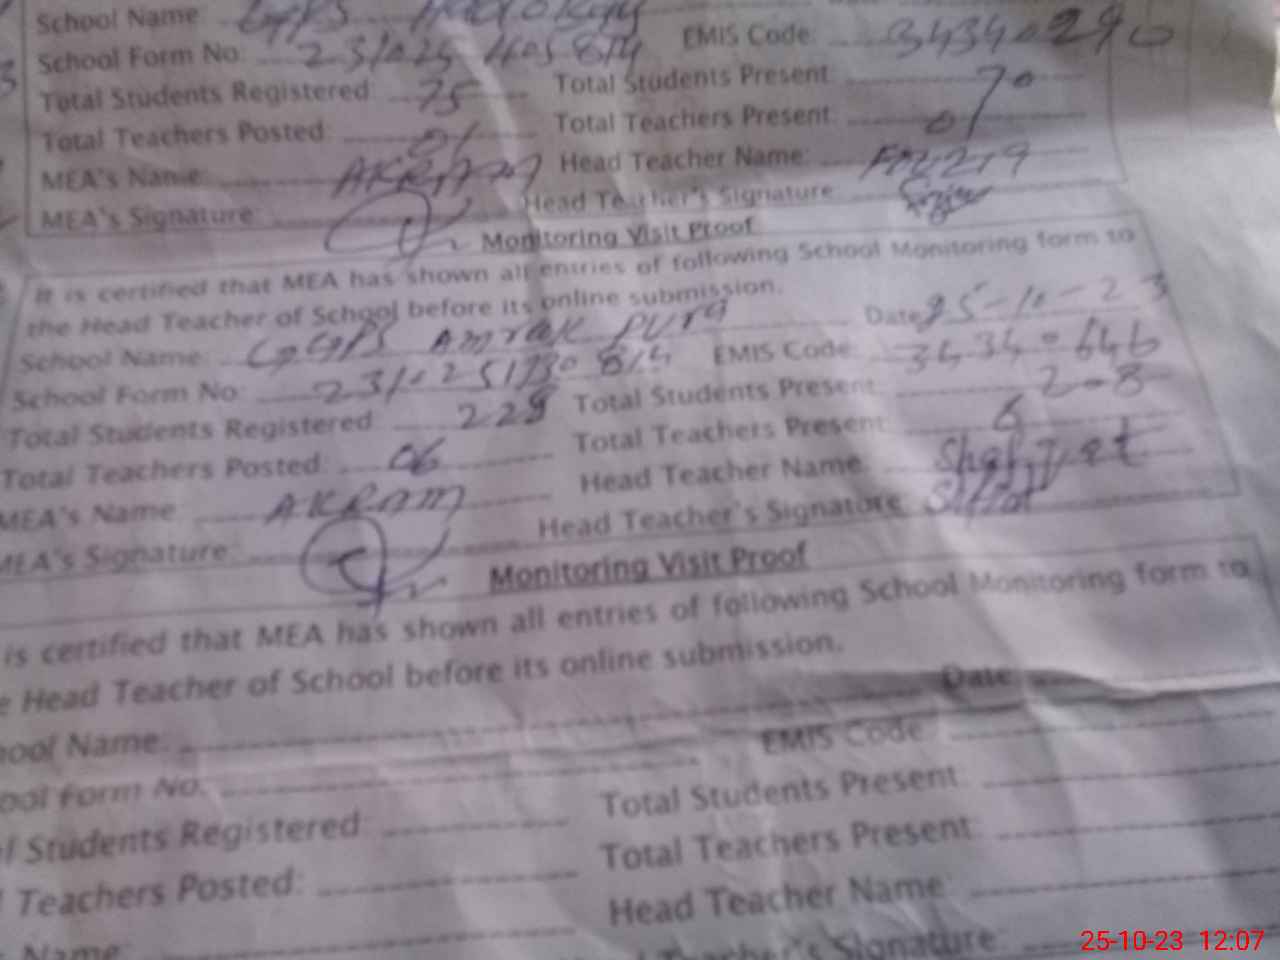 School Name: GGPS
School Form No: EMIS Code: 34340290
Total Students Registered: 75 Total Students Present: 70
Total Teachers Posted: 01 Total Teachers Present: 01
MEA's Name: AKRAM Head Teacher Name:
MEA's Signature: Head Teacher's Signature:
Monitoring Visit Proof
It is certified that MEA has shown all entries of following School Monitoring form to
the Head Teacher of School before its online submission.
Date 25-10-23
School Name: GGPS Amrak Pura
School Form No: EMIS Code: 34340646
Total Students Registered: 228 Total Students Present: 208
Total Teachers Posted: 06 Total Teachers Present: 6
MEA's Name: AKRAM Head Teacher Name:
MEA's Signature: Head Teacher's Signature:
Monitoring Visit Proof
is certified that MEA has shown all entries of following School Monitoring form to
e Head Teacher of School before its online submission.
Date:
ool Name: EMIS Code:
ool Form No: Total Students Present:
l Students Registered: Total Teachers Present:
l Teachers Posted: Head Teacher Name:
Name: Teacher's Signature:
25-10-23 12:07